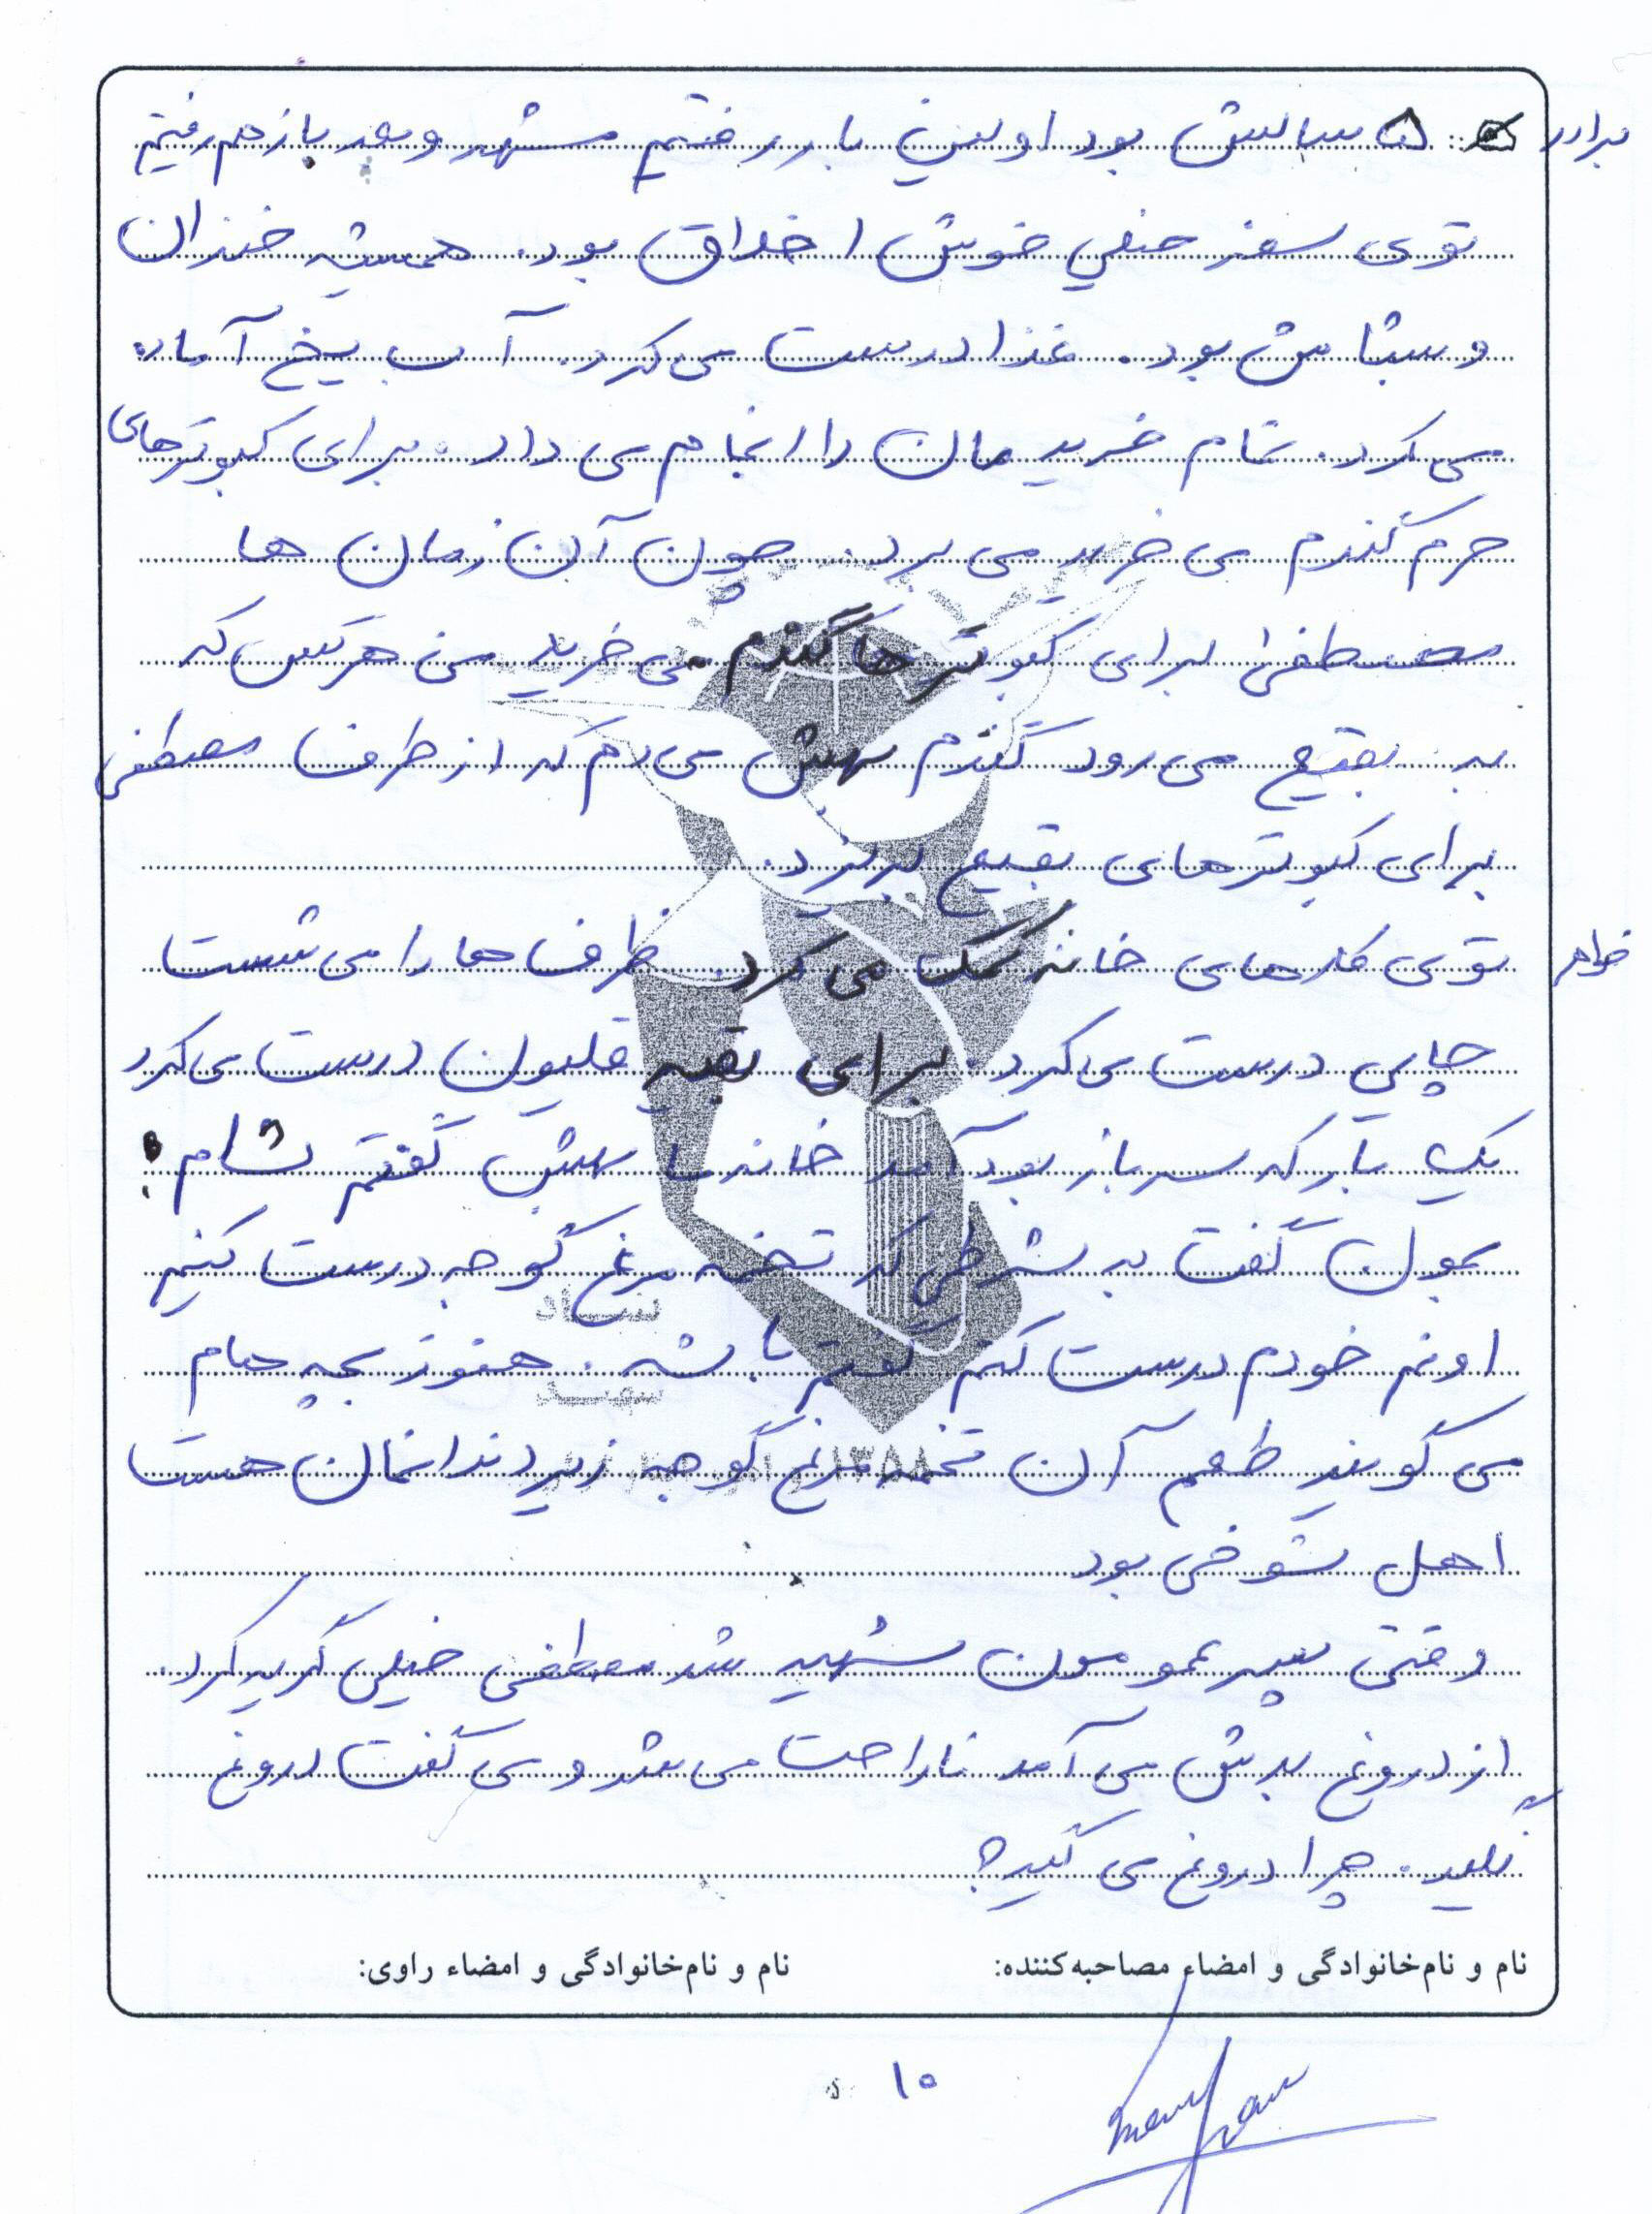 برادر ۵ سالش بود اولین بار رفتیم مشهد و بعد باز هم رفتیم
توی سفر خیلی خوش اخلاق بود. همیشه خندان
و بشاش بود. غذا درست می‌کرد. آب یخ آماده
می‌کرد. تمام خریدمان را انجام می‌داد. برای کبوترهای
حرم گندم می‌خرید می‌برد. چون آن زمان ها
مصطفی برای کبوترها گندم می‌خرید من هر کس که
به بقیع می‌رود گندم بهش می‌دم که از طرف مصطفی
برای کبوترهای بقیع بریزد.
خواهر توی کارهای خانه کمک می‌کرد. ظرف ها را می‌شست
چایی درست می‌کرد. برای بقیه قلیون درست می‌کرد
یک بار که سرباز بود آمد خانه ما بهش گفتم شام
بمون گفت به شرطی که تخمه مرغ گوجه درست کنیم
اونم خودم درست کنم گفتم باشه. هنوز بچه هام
می‌گویند طعم آن تخمه مرغ گوجه زیر دندانمان هست
اهل شوخی بود
وقتی پسر عمومون شهید شد مصطفی خیلی گریه کرد.
از دروغ بدش می‌آمد ناراحت می‌شد و می‌گفت دروغ
نگید. چرا دروغ می‌گید؟
نام و نام‌خانوادگی و امضاء مصاحبه‌کننده: نام و نام‌خانوادگی و امضاء راوی:
۱۰